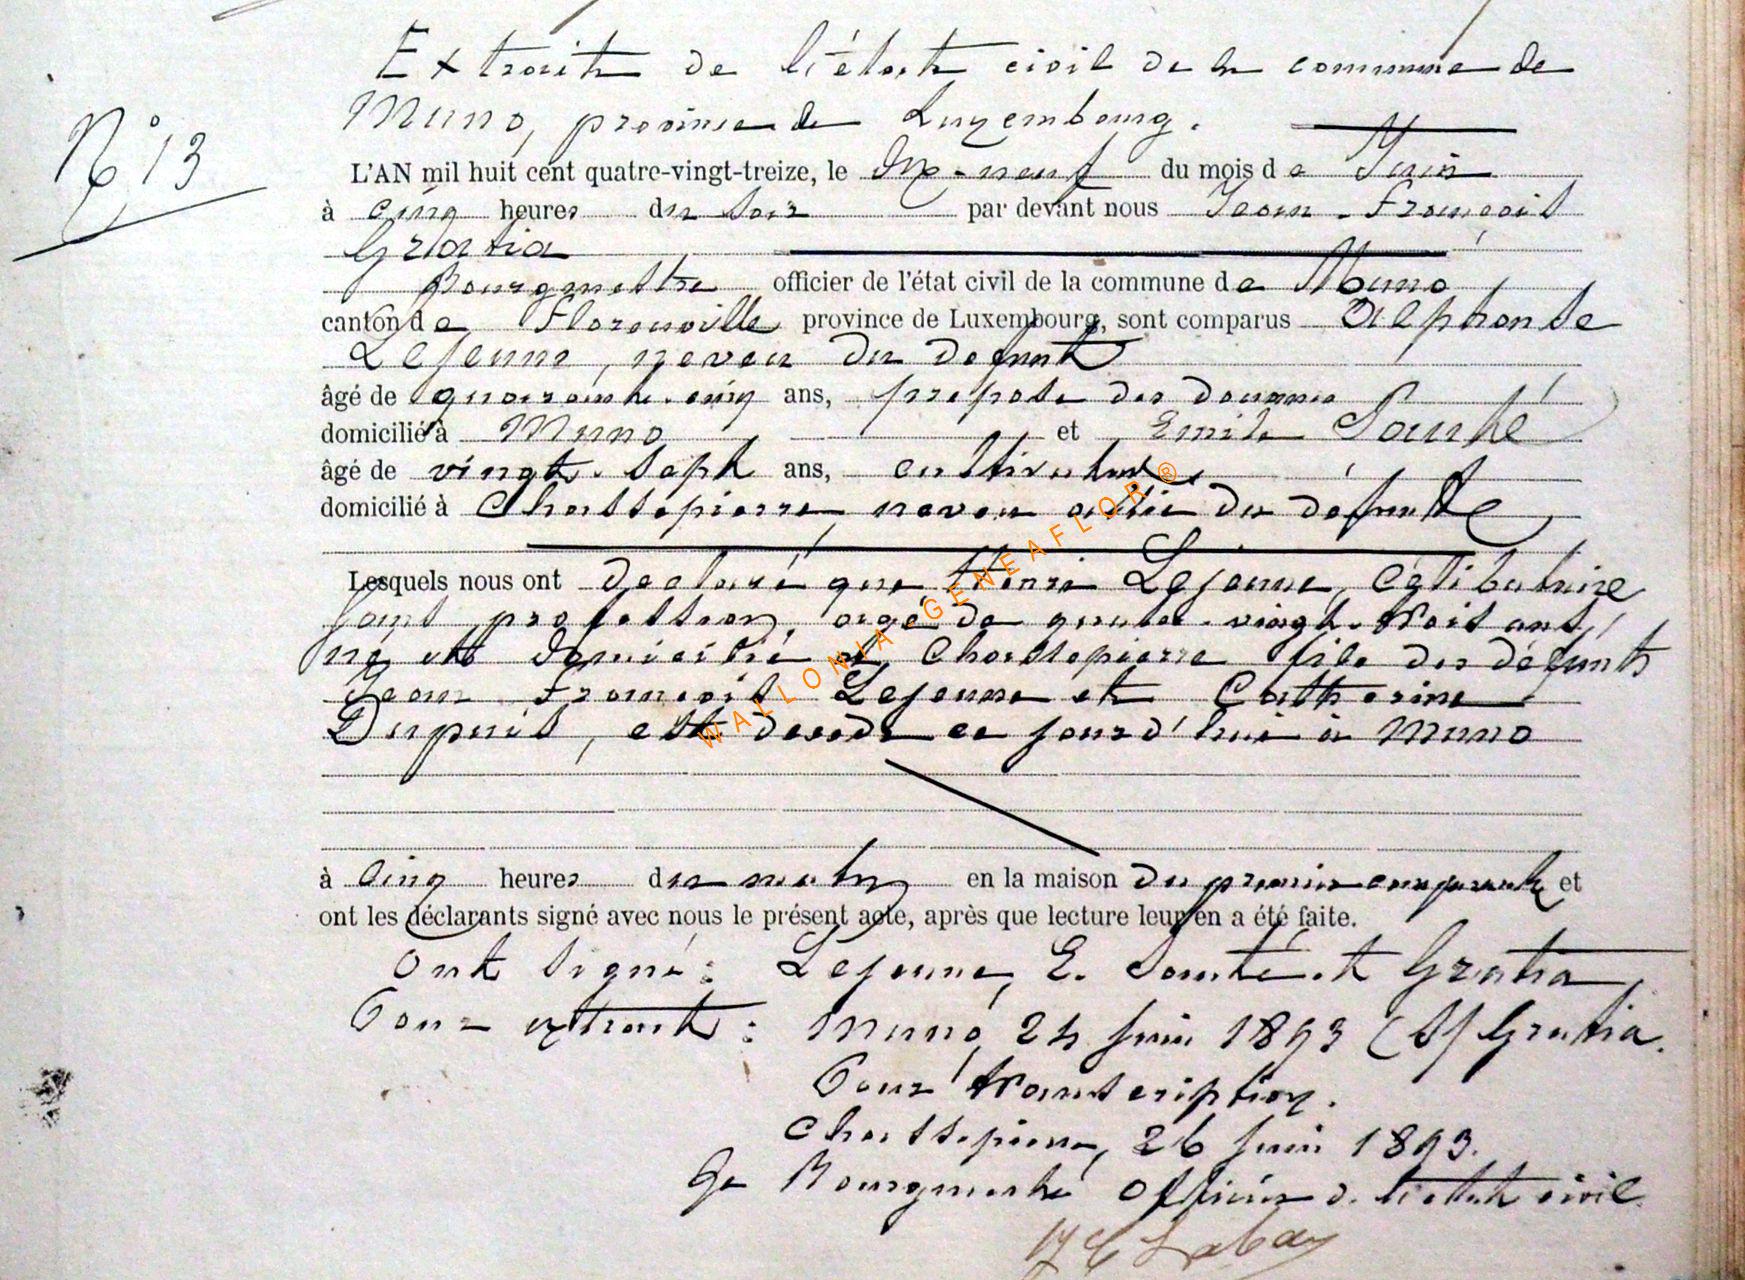 Extrait de l'état civil de la commune de
Muno, province de Luxembourg.
N° 13
L'AN mil huit cent quatre-vingt-treize, le dix-neuf du mois de Juin
à cinq heures du soir par devant nous Jean-François
Gratia
Bourgmestre officier de l'état civil de la commune de Muno
canton de Florenville province de Luxembourg, sont comparus Alphonse
Lejeune, neveu du defunt
âgé de quarante-cinq ans, préposé des douanes
domicilié à Muno et Emile
âgé de vingt-sept ans, cultivateur,
domicilié à Chassepierre, neveu allié du défunt
Lesquels nous ont declaré que Henri Lejeune, célibataire
sans profession, agé de quatre-vingt-trois ans,
né et domicilié à Chassepierre fils des défunts
Jean François Lejeune et Catherine
Dupuis, est décédé ce jourd'hui à Muno
à cinq heures du matin en la maison du premier comparant et
ont les déclarants signé avec nous le présent acte, après que lecture leur en a été faite.
Ont signé: Lejeune, E. et Gratia
Pour extrait: Muno, 24 Juin 1893 (S) Gratia.
Pour transcription.
Chassepierre, 26 Juin 1893.
Le Bourgmestre Officier de l'état civil
WALLONIA-GENEAFLOR®